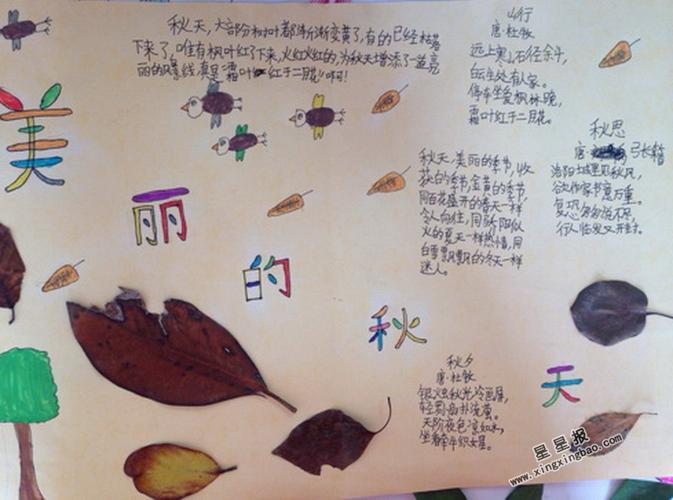 美丽的秋天
秋天，大部分树叶都渐渐变黄了，有的已经枯落
下来了，唯有枫叶红了下来，火红火红的，为秋天增添了一道亮
丽的风景线，真是“霜叶红于二月花”啊！
山行
唐·杜牧
远上寒山石径余斗，
白云生处有人家。
停车坐爱枫林晚，
霜叶红于二月花。
秋思
唐 张籍
洛阳城里见秋风，
欲作家书意万重。
复恐匆匆说不尽，
行人临发又开封。
秋天，美丽的季节，收
获的季节，金黄的季节，
同百花盛开的春天一样
令人向往，同骄阳似
火的夏天一样热情，同
白雪飘飘的冬天一样
迷人。
秋夕
唐·杜牧
银烛秋光冷画屏，
轻罗小扇扑流萤。
天阶夜色凉如水，
坐看牵牛织女星。
星星报
www.xingxingbao.com